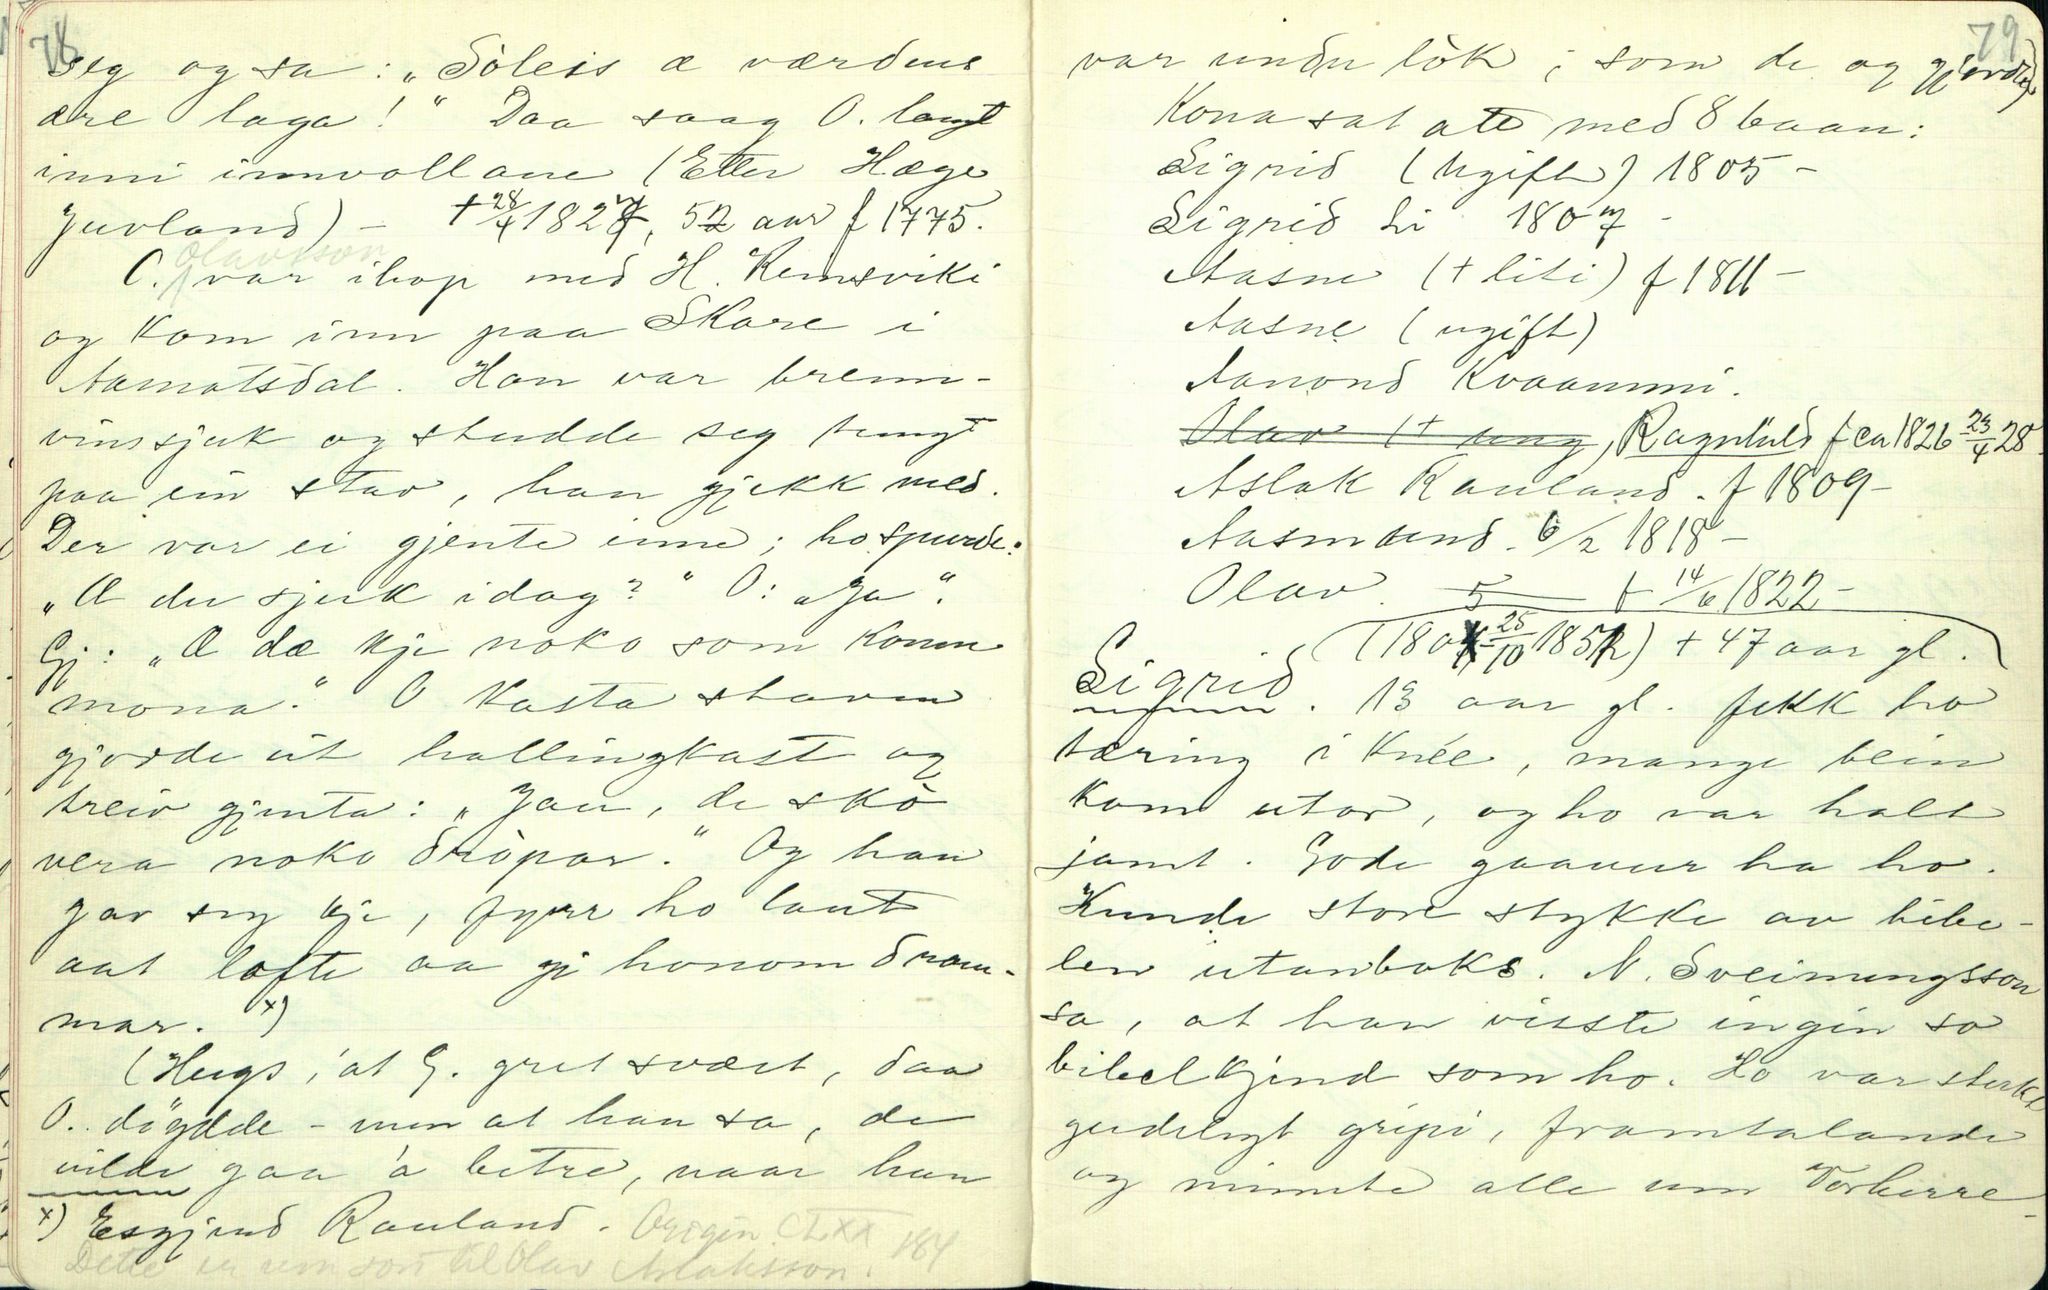 78
seg og sa: „Sòleis æ værdens
ære laga!" Daa saag O. langt
inni innvollane (Etter Hæge
Juvland) – + 28/4 1827, 52 aar f 1775.
Olavsson
O. var ihop med H. Remsviki
og kom inn paa Skare i
Aamotsdal. Han var brenn-
vinssjuk og studde seg tungt
paa ein stav, han gjekk med.
Der var ei gjente inne; ho spurde:
„Æ du sjuk idag?" O: „Ja".
Gj: „Æ dæ kje noko som konn
mona." O kasta staven
gjorde eit hallingkast og
treiv gjenta: „Jau, de skò
vera noko dròpar." Og han
gav seg kje, fyrr ho laut
aat lofte aa gj honom dram-
mar. x)
(Hugs, at G. gret svært, daa
O. döydde – men at han sa, de
vilde gaa 'o betre, naar han
x) Esgjerd Rauland. Origin. CLXX 184
Dette er um son til Olav Aslaksson.
79
var undu lòk; som de og gjorde)
Kona sat att med 8 baan:
Sigrid (Ugift) 1805 –
Sigrid Li 1807 –
Aasne (+ liti) f 1811 –
Aasne (ugift)
Aanond Kvaammi.
Olav (+ ung, Ragnhild f ca 1826 23/4 28
Aslak Rauland. f 1809 –
Aasmund. 6/2 1818 –
Olav. 5 f 14/6 1822 –
(1804 25/10 1852) + 47 aar gl.
Sigrid. 13 aar gl. fekk ho
tæring i kneé, mange bein
kom utor, og ho var halt
jamt. Gode gaavur ha ho.
Kunde store stykke av bibe-
len utanboks. N. Sveinungsson
sa, at han visste ingin so
bibelkjend som ho. Ho var sterkt
gudelegt gripi, framtalande
og minnte alle um Vorherre